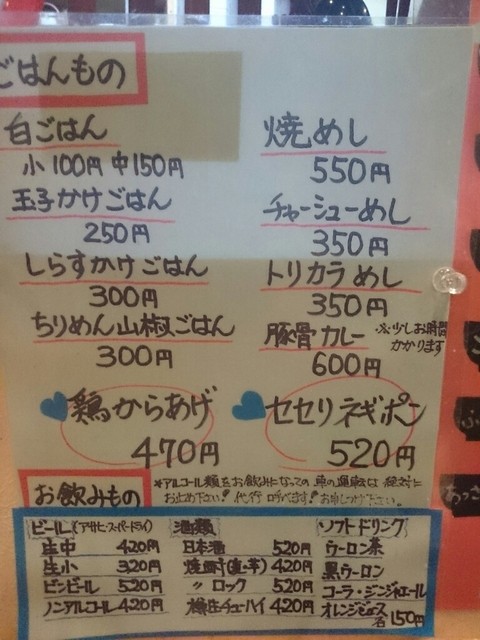 ごはんもの
白ごはん
小100円 中150円
玉子かけごはん
250円
しらすかけごはん
300円
ちりめん山椒ごはん
300円
焼めし
550円
チャーシューめし
350円
トリカラめし
350円
豚骨カレー ※少しお時間
かかります
600円
鶏からあげ
470円
セセリネギポン
520円
お飲みもの
*アルコール類をお飲みになっての車の運転は絶対に
お止め下さい! 代行呼べます! お申しつけ下さい。
ビール(アサヒ・スーパードライ)
生中 420円
生小 320円
ビンビール 520円
ノンアルコール 420円
酒類
日本酒 520円
焼酎(麦・芋) 420円
〃 ロック 520円
樽生チューハイ 420円
ソフトドリンク
ウーロン茶
黒ウーロン
コーラ・ジンジャエール
オレンジジュース
各150円